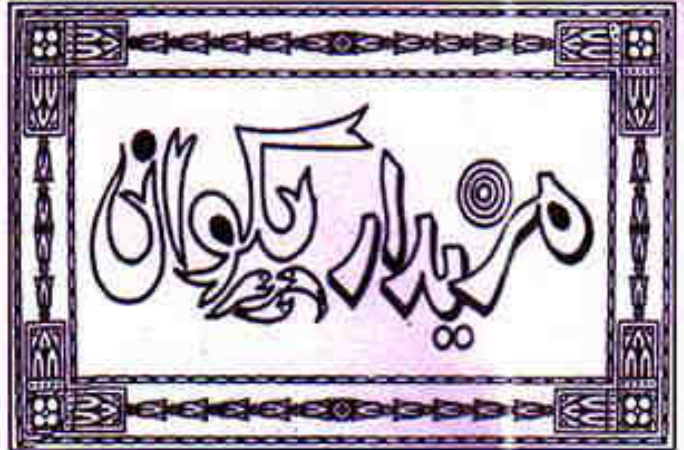 مزیدار پکوان